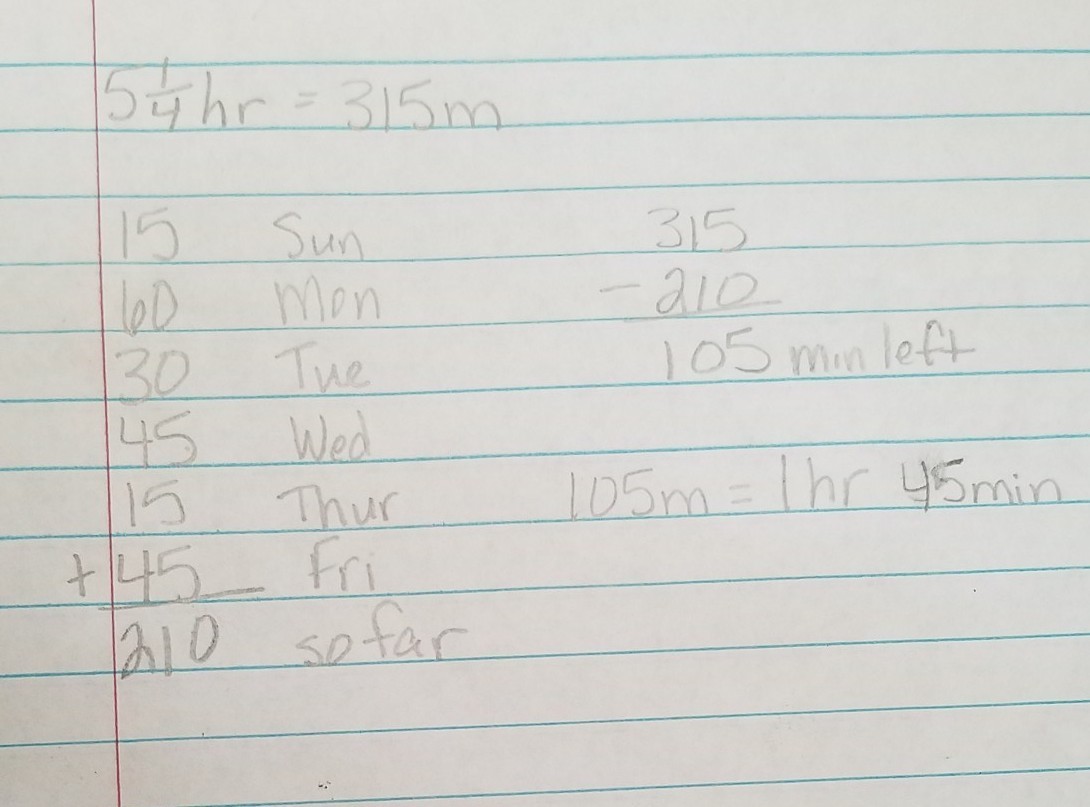 5 1/4 hr = 315m
15 Sun
60 Mon
30 Tue
45 Wed
15 Thur
+ 45 Fri
210 so far
315
- 210
105 min left
105m = 1hr 45min